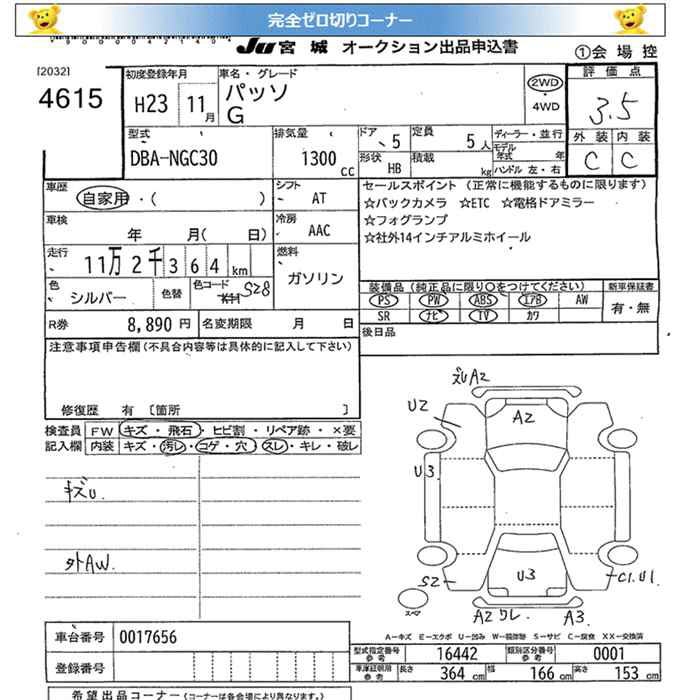 完全ゼロ切りコーナー
JU 宮城 オークション出品申込書
①会場控
[2032]
4615
初度登録年月 H23 11月
車名・グレード パッソ
G
2WD・4WD
評価点 3.5
外装 内装
C C
型式 DBA-NGC30
排気量 1300cc
ドア 5 定員 5人
形状 HB 積載 kg
ディーラー・並行
モデル年式 年
ハンドル 左・右
車歴 自家用・( )
シフト AT
車検 年 月( 日)
冷房 AAC
走行 11万2千364km
燃料 ガソリン
色 シルバー 色替 色コード S28
R券 8,890円 名変期限 月 日
セールスポイント (正常に機能するものに限ります)
☆バックカメラ ☆ETC ☆電格ドアミラー
☆フォグランプ
☆社外14インチアルミホイール
装備品 (純正品に限り○をつけてください) 新車保証書
PS PW ABS エアB AW 有・無
SR ナビ TV カワ
後日品
注意事項申告欄(不具合内容等は具体的に記入して下さい)
修復歴 有 [箇所 ]
検査員記入欄
FW キズ・飛石・ヒビ割・リペア跡・×要
内装 キズ・汚レ・コゲ・穴・スレ・キレ・破レ
キズU.
外AW.
ズリA2
U2
A2
U3
U3
S2
C1.U1
スペア
A2ワレ
A3.
A-キズ E-エクボ U-凹み W-補修跡 S-サビ C-腐食 XX-交換済
車台番号 0017656
登録番号
型式指定番号 参考 16442 類別区分番号 参考 0001
車庫証明用 参考 長さ 364cm 幅 166cm 高さ 153cm
希望出品コーナー(コーナーは各会場により異なります。)